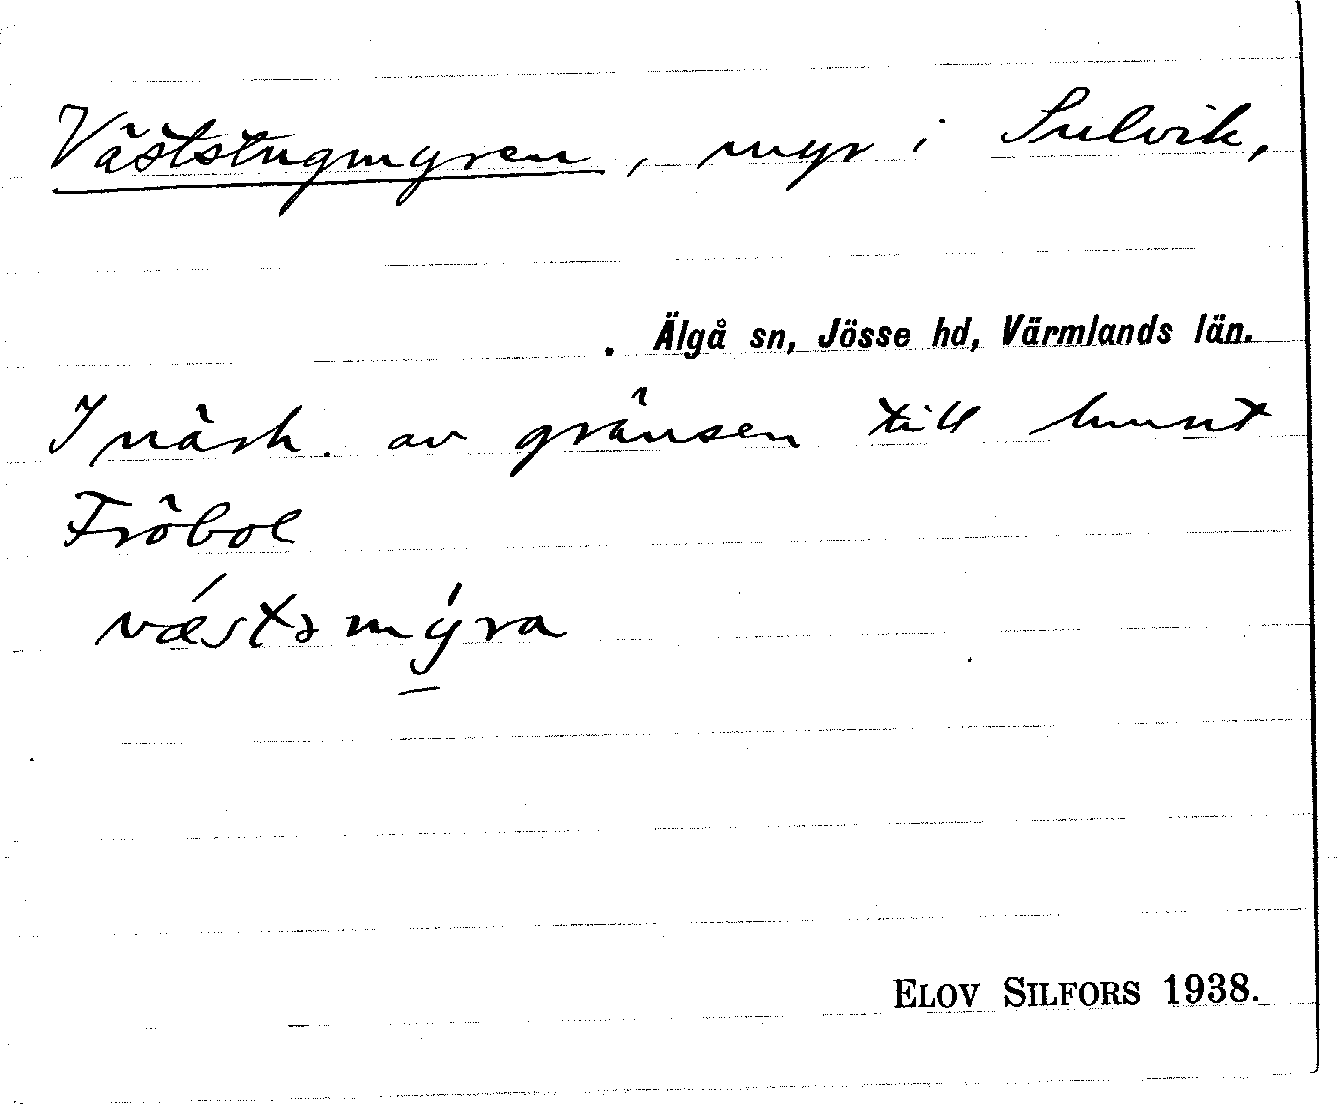 Väststugmyren, myr i Sulvik,
. Älgå sn, Jösse hd, Värmlands län.
I närh. av gränsen till hmnt
Fröbol
vǽstəmýra
ELOV SILFORS 1938.